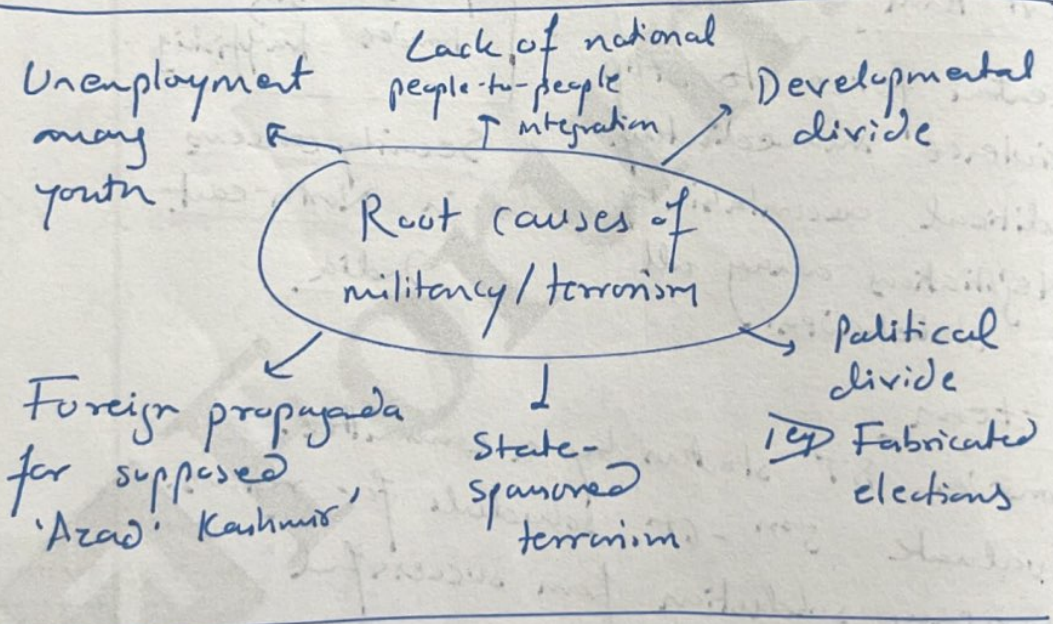 Unemployment
among
youth
Lack of national
people-to-people
integration
Developmental
divide
Root causes of
militancy/terrorism
Foreign propaganda
for supposed
'Azad' Kashmir'
State-
sponsored
terrorism
Political
divide
eg Fabricated
elections